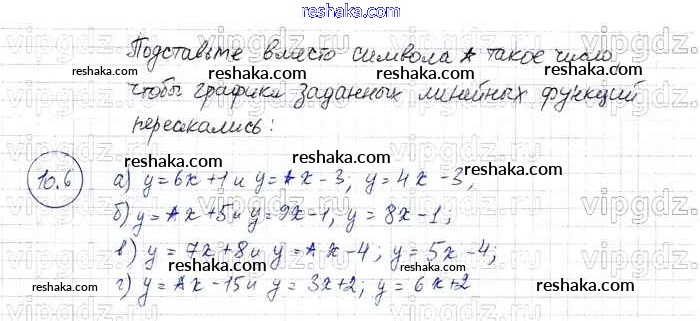 reshaka.com
Подставьте вместо символа * такое число,
reshaka.com reshaka.com reshaka.com
чтобы графики заданных линейных функций
пересекались:
reshaka.com reshaka.com
10.6 а) y=6x+1 и y=*x-3; y=4x-3;
reshaka.com reshaka.com reshaka.com
б) y=*x+5 и y=9x-1, y=8x-1;
в) y=7x+8 и y=*x-4; y=5x-4;
reshaka.com reshaka.com
г) y=*x-15 и y=3x+2; y=6x+2
reshaka.com